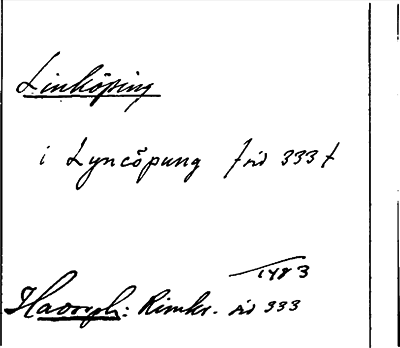 Linköping
i Lyncöpung / sid 333 /
1483
Hadorph: Rimkr. sid 333